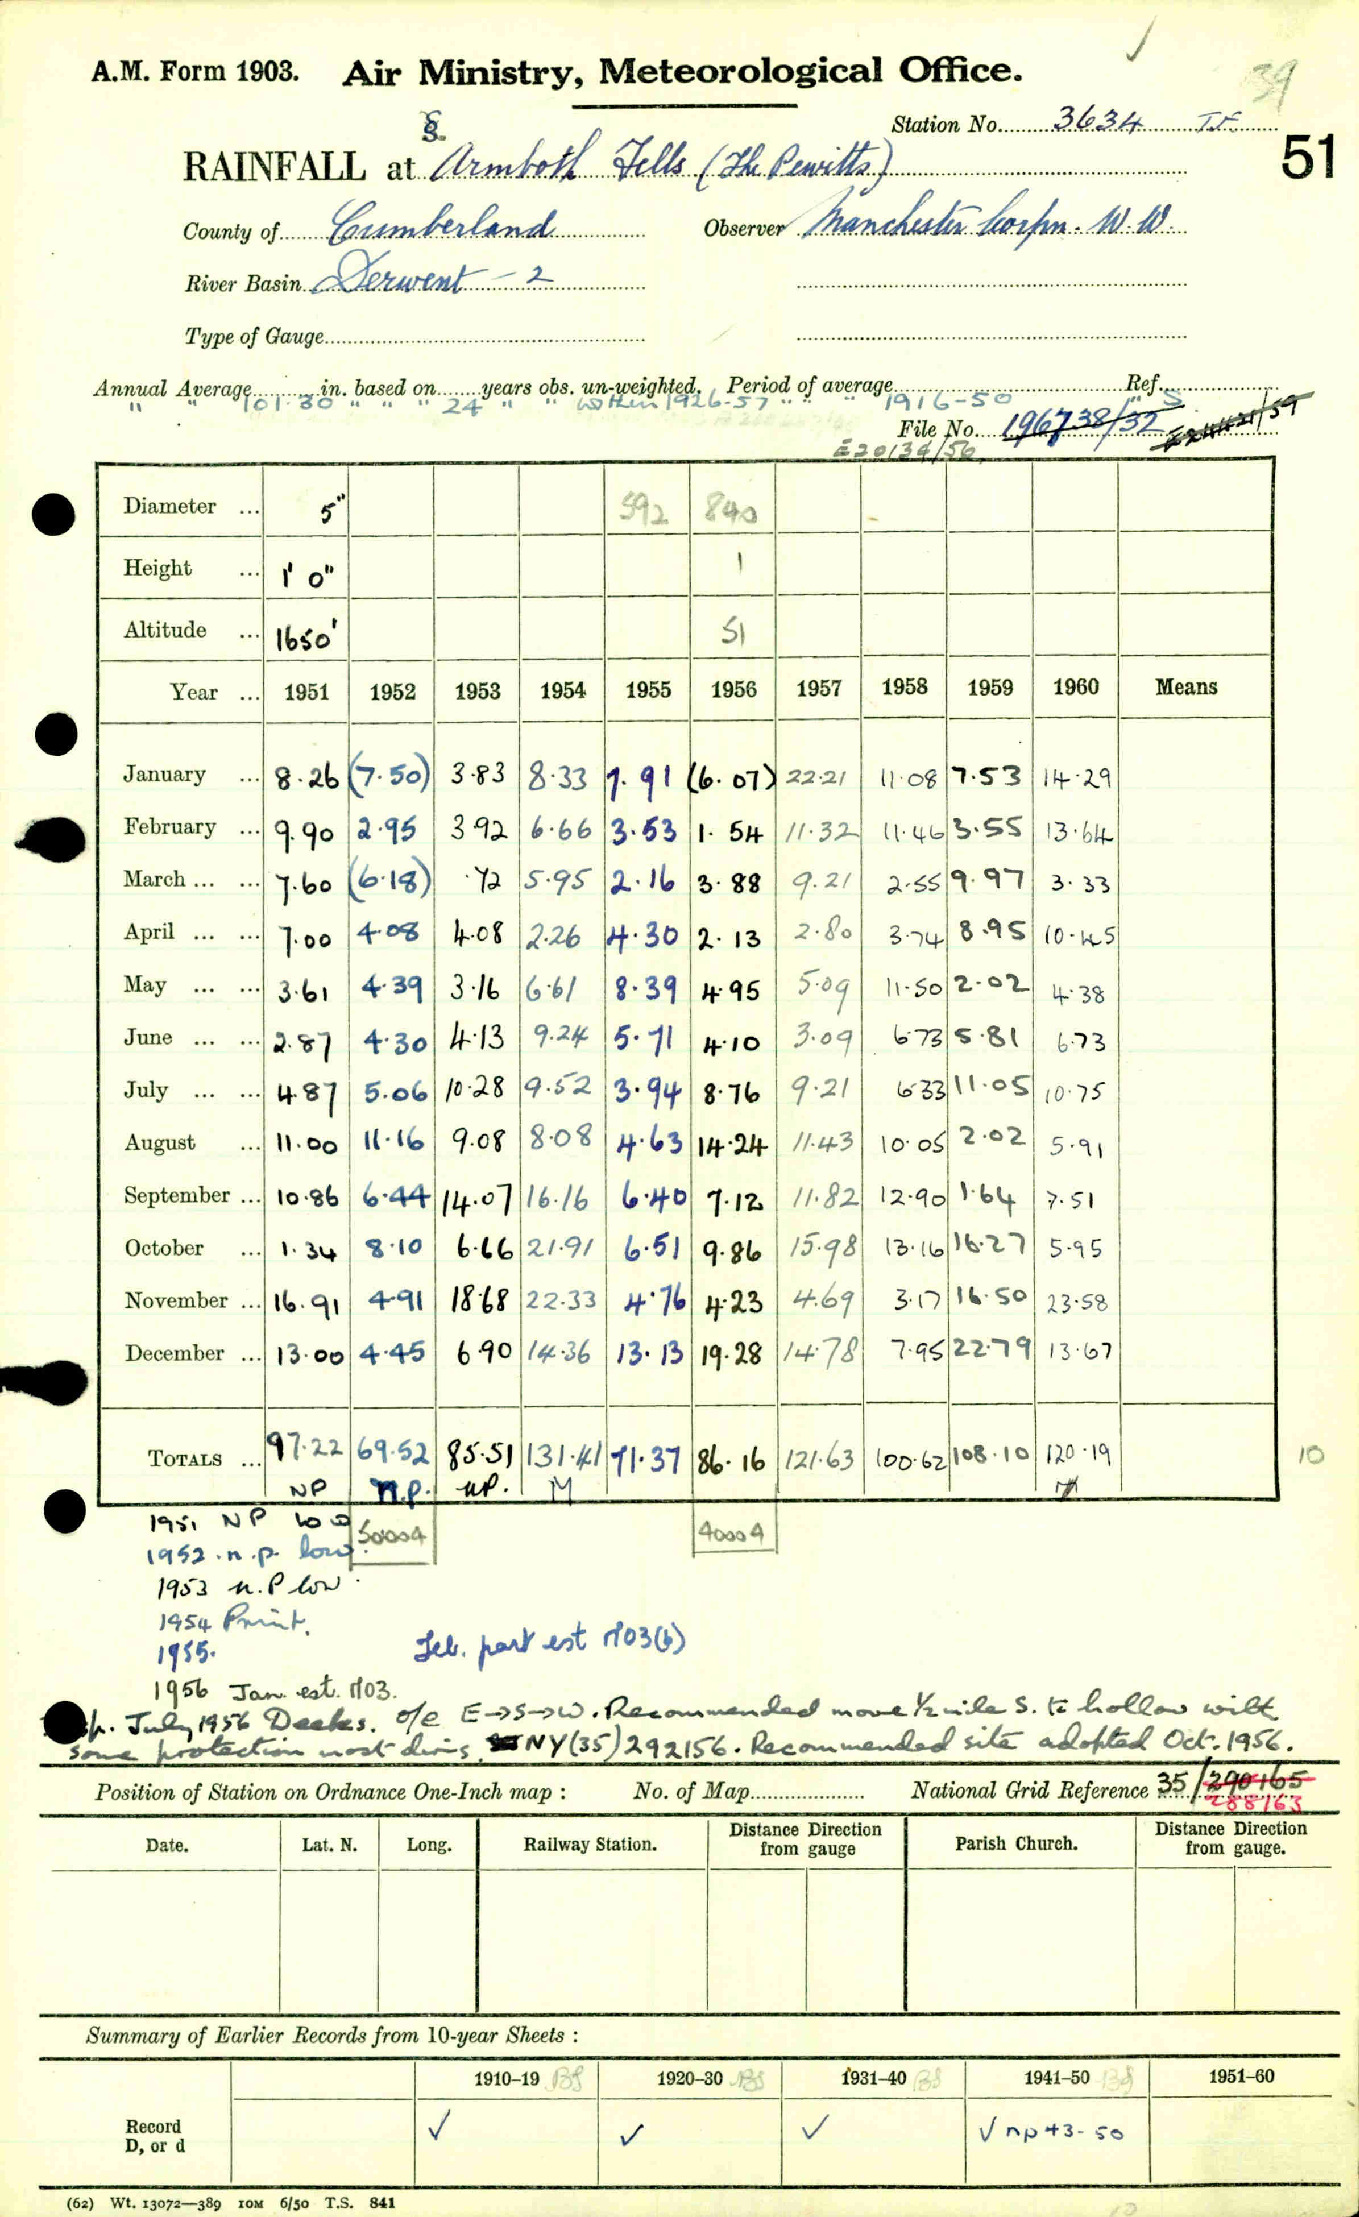 A.M. Form 1903. Air Ministry, Meteorological Office.
39
Station No. 3634 T.F.
51
§
RAINFALL at Armboth Fells (The Pewitts)
County of Cumberland Observer Manchester Corpn. W.W.
River Basin Derwent - 2
Type of Gauge
Annual Average in. based on years obs. un-weighted. Period of average Ref.
" " 101.30 " " " 24 " " within 1926-57 " " " 1916-50 " S
File No. 196738/32
E20134/56
Diameter ... 5" 592 840
Height ... 1' 0" 1
Altitude ... 1650' 51
Year ... 1951 1952 1953 1954 1955 1956 1957 1958 1959 1960 Means
January ... 8.26 (7.50) 3.83 8.33 7.91 (6.07) 22.21 11.08 7.53 14.29
February ... 9.90 2.95 3.92 6.66 3.53 1.54 11.32 11.46 3.55 13.64
March ... ... 7.60 (6.18) .72 5.95 2.16 3.88 9.21 2.55 9.97 3.33
April ... ... 7.00 4.08 4.08 2.26 4.30 2.13 2.80 3.74 8.95 10.45
May ... ... 3.61 4.39 3.16 6.61 8.39 4.95 5.09 11.50 2.02 4.38
June ... ... 2.87 4.30 4.13 9.24 5.71 4.10 3.09 6.73 5.81 6.73
July ... ... 4.87 5.06 10.28 9.52 3.94 8.76 9.21 6.33 11.05 10.75
August ... 11.00 11.16 9.08 8.08 4.63 14.24 11.43 10.05 2.02 5.91
September ... 10.86 6.44 14.07 16.16 6.40 7.12 11.82 12.90 1.64 7.51
October ... 1.34 8.10 6.66 21.91 6.51 9.86 15.98 13.16 16.27 5.95
November ... 16.91 4.91 18.68 22.33 4.76 4.23 4.69 3.17 16.50 23.58
December ... 13.00 4.45 6.90 14.36 13.13 19.28 14.78 7.95 22.79 13.67
TOTALS ... 97.22 69.52 85.51 131.41 71.37 86.16 121.63 100.62 108.10 120.19
10
NP n.p. NP. M
1951 NP low 50004 40004
1952 . n.p. low.
1953 n.P low.
1954 Print.
1955. Feb. part est 1703(b)
1956 Jan. est. 1703.
July 1956 Deeks. o/e E→S→W. Recommended move ½ mile S. to hollow with
some protection most dirns. NY(35)292156. Recommended site adopted Oct. 1956.
Position of Station on Ordnance One-Inch map : No. of Map National Grid Reference 35/290165
288163
Date. Lat. N. Long. Railway Station. Distance from gauge Direction Parish Church. Distance Direction from gauge.
Summary of Earlier Records from 10-year Sheets :
1910–19 BS 1920–30 BS 1931–40 BS 1941–50 BS 1951–60
Record D, or d ✓ ✓ ✓ ✓ np 43-50
(62) Wt. 13072—389 10M 6/50 T.S. 841